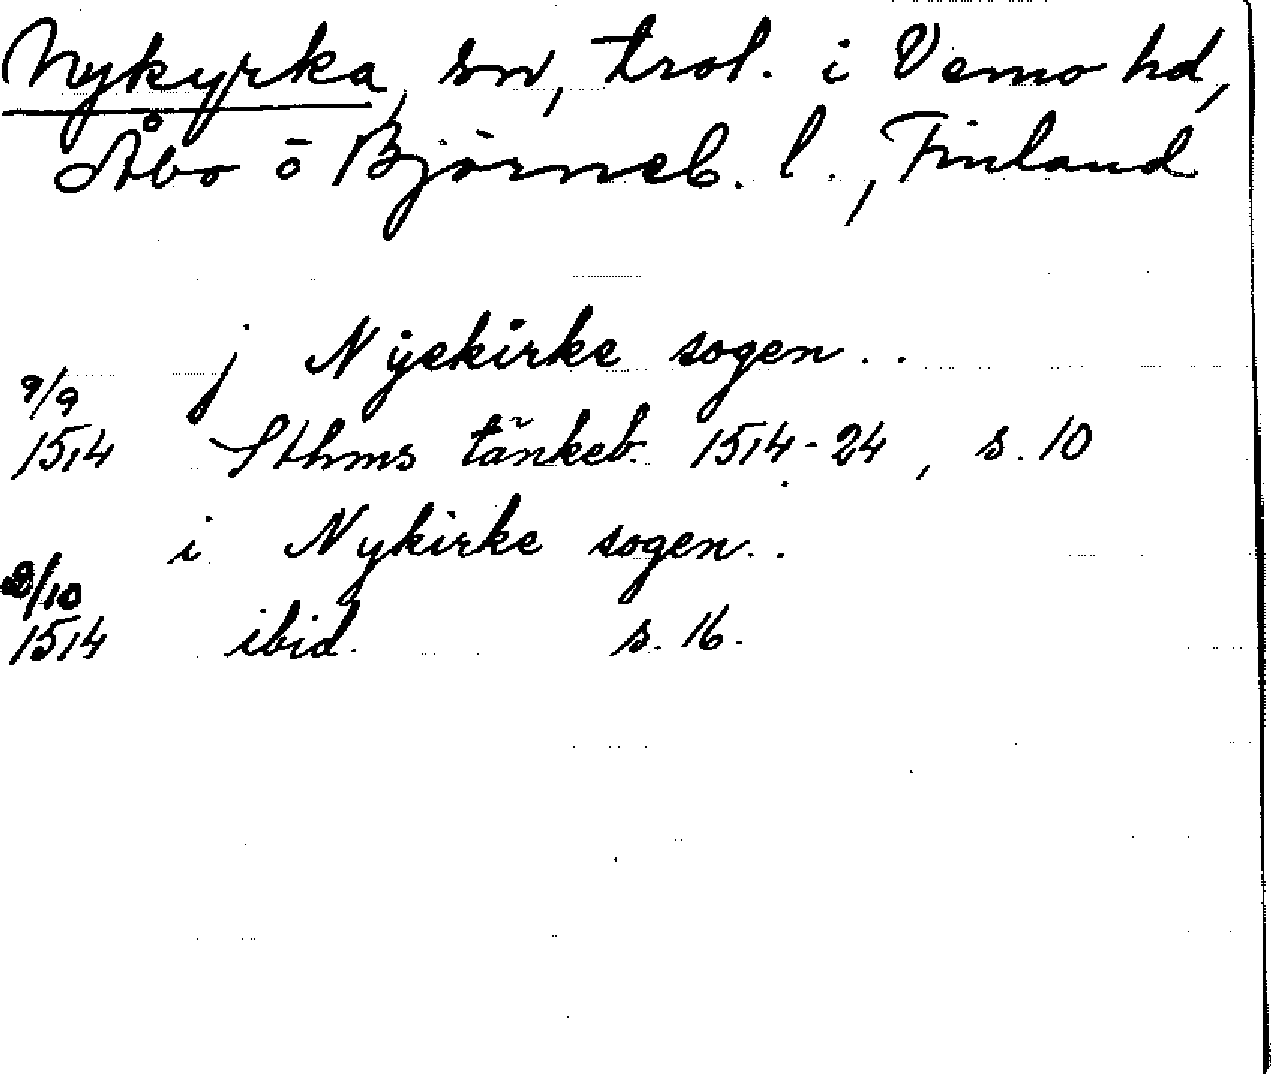 Nykyrka, sn, trol. i Vemo hd,
Åbo o Björneb. l., Finland
j Nyekirke sogen..
9/9
1514 Sthms tänkeb. 1514-24, s. 10
i Nykirke sogen..
2/10
1514 ibid. s. 16.